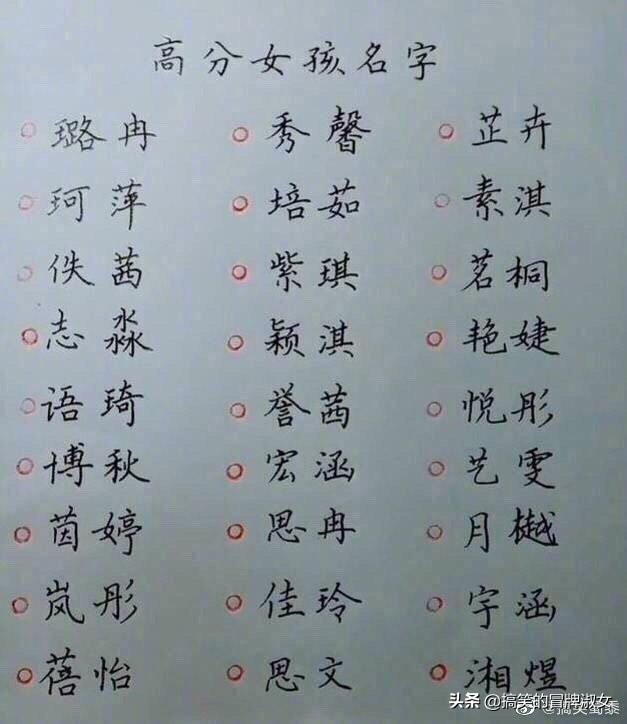 高分女孩名字
璐冉 秀馨 芷卉
珂萍 培茹 素淇
佚茜 紫琪 茗桐
志淼 颖淇 艳婕
语琦 誉茜 悦彤
博秋 宏涵 艺雯
茵婷 思冉 月樾
岚彤 佳玲 宇涵
蓓怡 思文 湘煜
头条 @搞笑的冒牌淑女